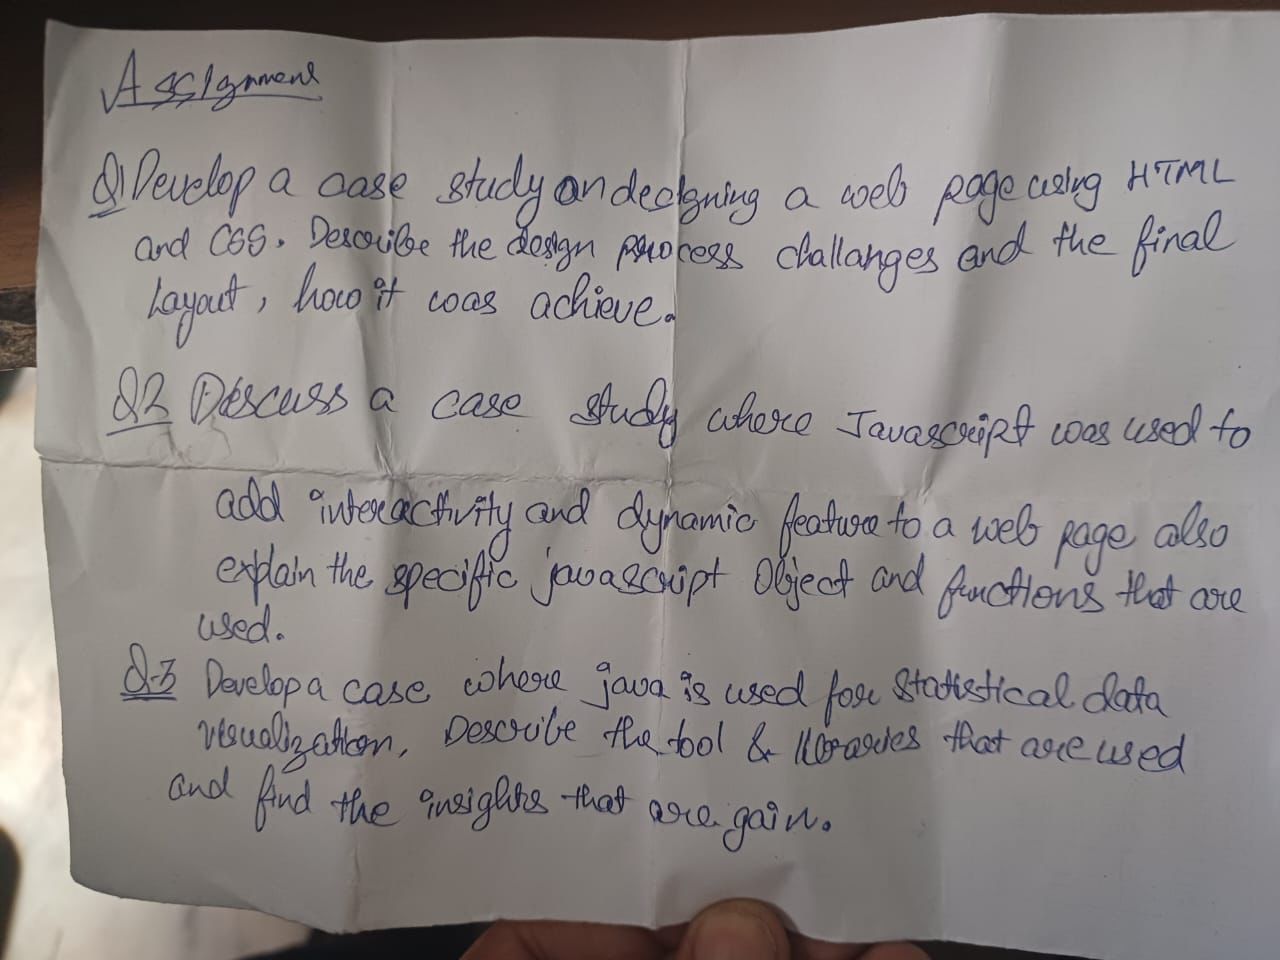 Assignment
Q1 Develop a case study on designing a web page using HTML
and CSS. Describe the design process challanges and the final
Layout, how it was achieve.
Q2 Discuss a case study where Javascript was used to
add interactivity and dynamic feature to a web page also
explain the specific javascript Object and functions that are
used.
Q.3 Develop a case where java is used for Statistical data
visualization, Describe the tool & libraries that are used
and find the insights that are gain.